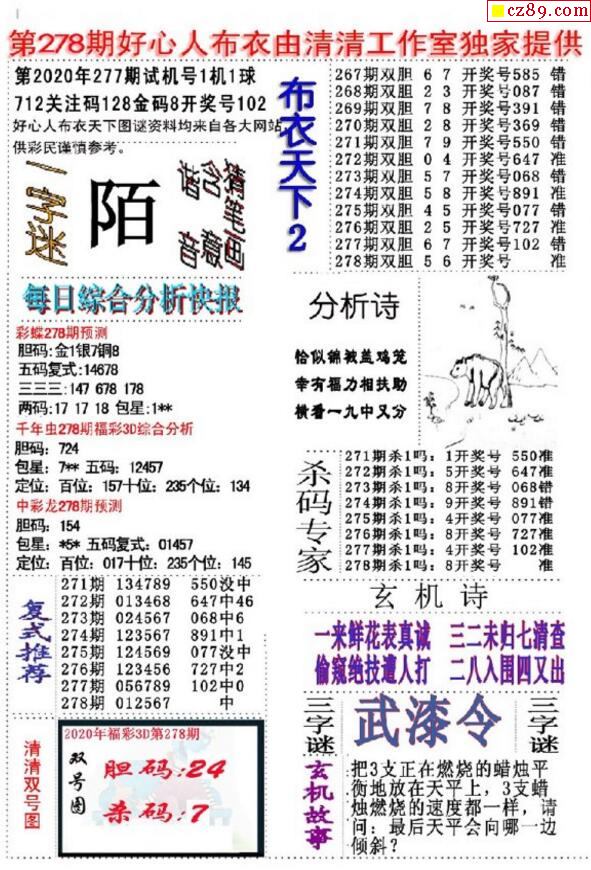 cz89.com
第278期好心人布衣由清清工作室独家提供
第2020年277期试机号1机1球
712关注码128金码8开奖号102
好心人布衣天下图谜资料均来自各大网站
供彩民谨慎参考。
一字迷
陌
猜笔画
含意
谐音
布衣天下2
267期双胆 6 7 开奖号585 错
268期双胆 2 3 开奖号087 错
269期双胆 7 8 开奖号391 错
270期双胆 2 8 开奖号369 错
271期双胆 7 9 开奖号550 错
272期双胆 0 4 开奖号647 准
273期双胆 5 7 开奖号068 错
274期双胆 5 8 开奖号891 准
275期双胆 4 5 开奖号077 错
276期双胆 2 5 开奖号727 准
277期双胆 6 7 开奖号102 错
278期双胆 5 6 开奖号 准
每日综合分析快报
彩蝶278期预测
胆码:金1银7铜8
五码复式:14678
三三三:147 678 178
两码:17 17 18 包星:1**
千年虫278期福彩3D综合分析
胆码: 724
包星: 7** 五码: 12457
定位: 百位: 157十位: 235个位: 134
中彩龙278期预测
胆码: 154
包星: *5* 五码复式: 01457
定位: 百位: 017十位: 235个位: 145
分析诗
恰似锦被盖鸡笼
幸有福力相扶助
横看一九中又分
杀码专家
271期杀1吗: 1开奖号 550准
272期杀1吗: 5开奖号 647准
273期杀1吗: 8开奖号 068错
274期杀1吗: 9开奖号 891错
275期杀1吗: 4开奖号 077准
276期杀1吗: 8开奖号 727准
277期杀1吗: 4开奖号 102准
278期杀1吗: 8开奖号 准
复式推荐
271期 134789 550没中
272期 013468 647中46
273期 024567 068中6
274期 123567 891中1
275期 124569 077没中
276期 123456 727中2
277期 056789 102中0
278期 012567 中
玄机诗
一来鲜花表真诚 三二未归七清查
偷窥绝技遭人打 二八入围四又出
三字谜
武漆令
三字谜
清清双号图
2020年福彩3D第278期
双号图
胆码:24
杀码:7
玄机故事
把3支正在燃烧的蜡烛平
衡地放在天平上，3支蜡
烛燃烧的速度都一样，请
问：最后天平会向哪一边
倾斜？